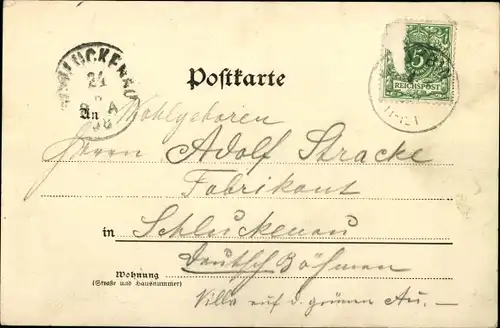 SCHLUCKENAU
24
98
5
REICHSPOST
Postkarte
An Wohlgeboren
Herrn Adolf Stracke
Fabrikant
in Schluckenau
Deutsch Böhmen
Wohnung
(Straße und Hausnummer)
Villa auf d. grünen Au.-